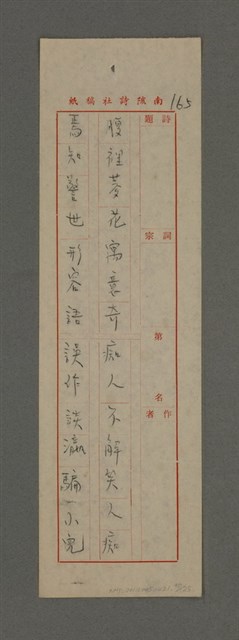 165
南陔詩社稿紙
詩題
詞宗
第 名
作者
腹裡蔘花寓意奇痴人不解笑人痴
焉知警世形容語誤作談瀛騙小兒